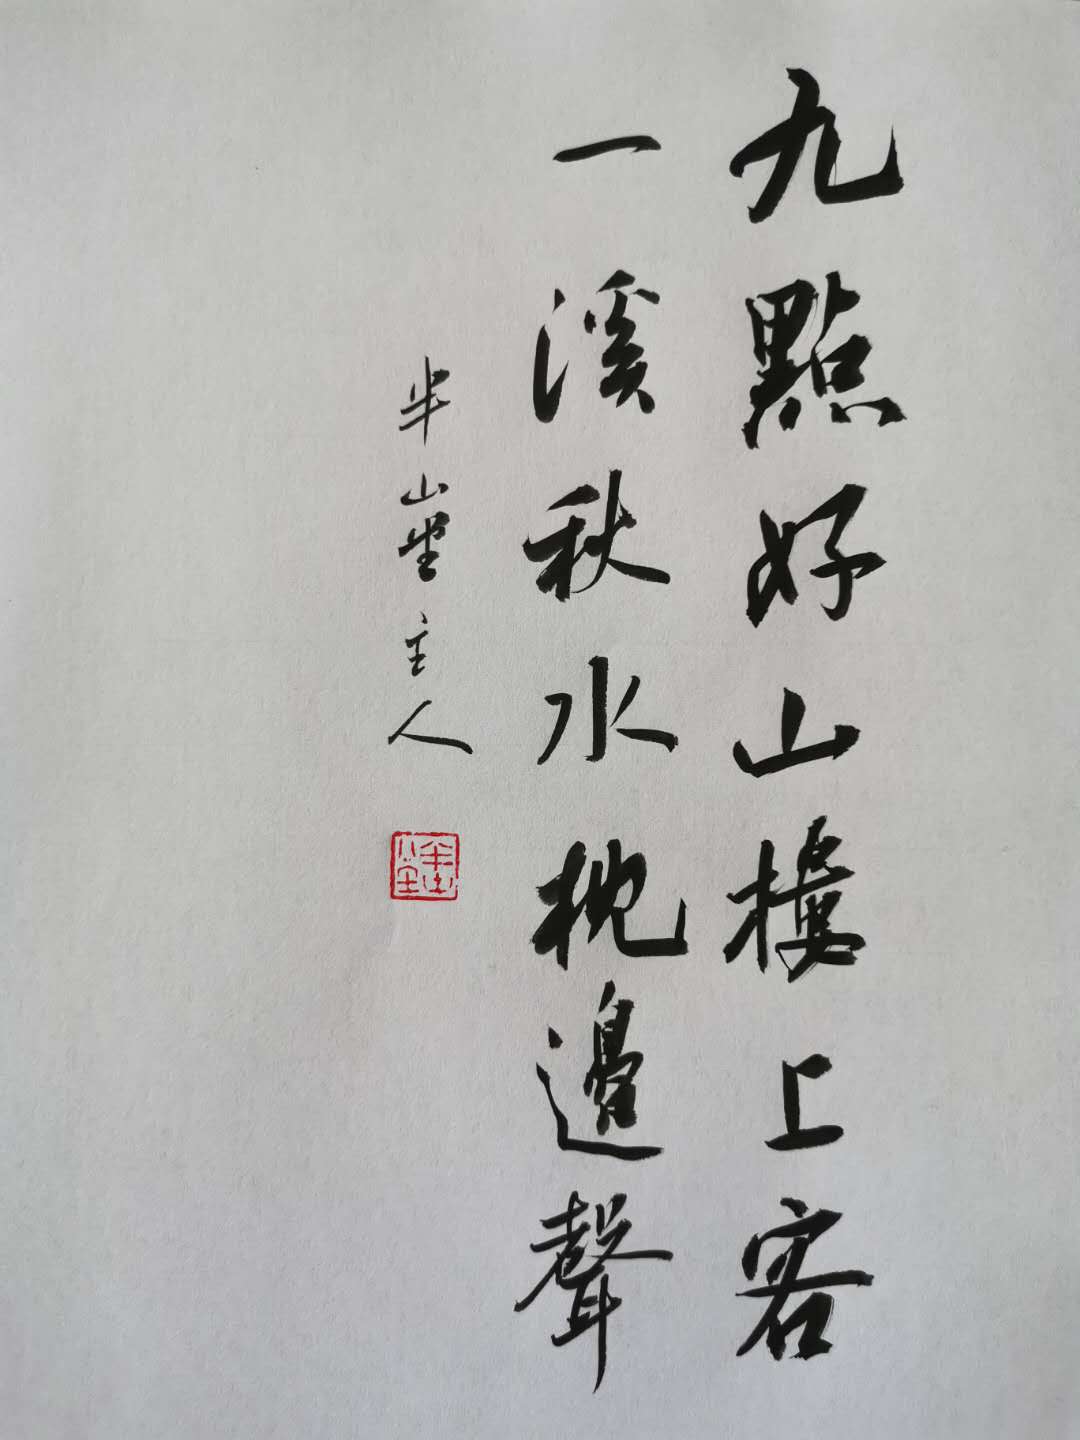 九點好山樓上客
一溪秋水枕邊聲
半山堂主人